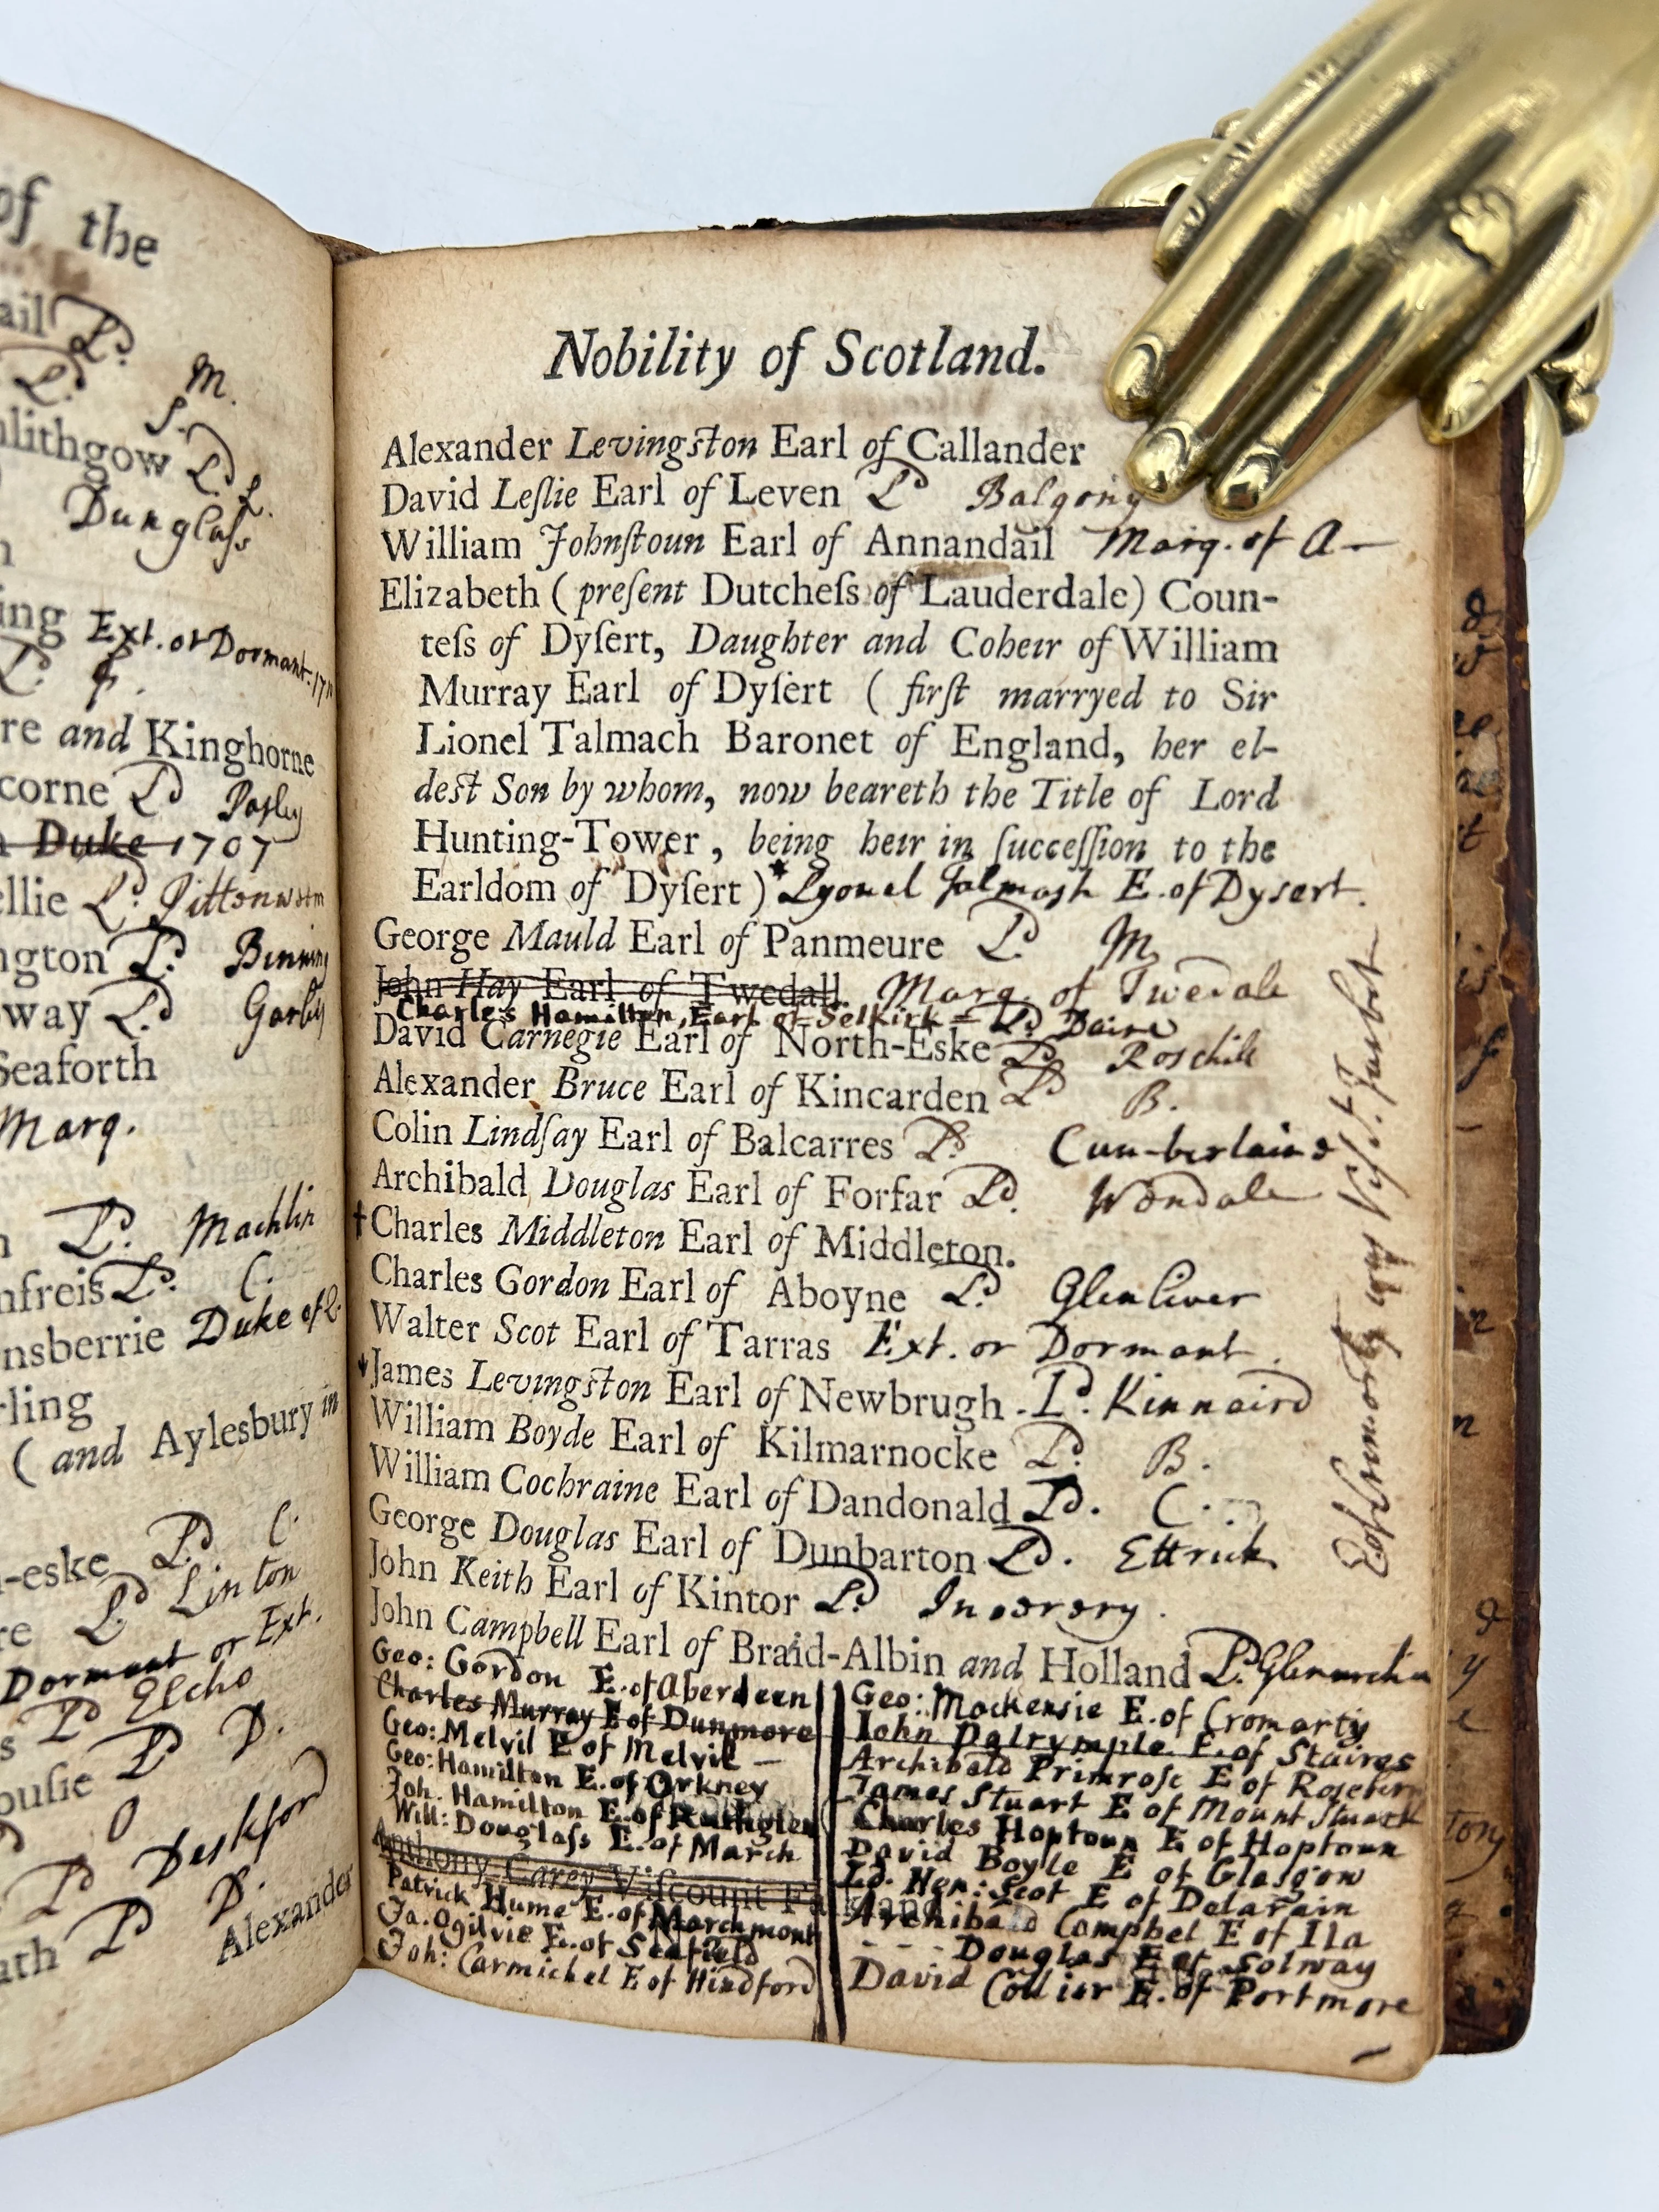 of the
ail Ld.
Ld. M.
lithgow Ld. S.
L.
Dunglaſs
ing Ext. or Dormant. 171
L.
re and Kinghorne
corne Ld Paſly
Duke 1707
ellie Ld. Pittenwem
ngton Ld. Binning
way Ld. Garlis
Seaforth
Marq.
Ld. Machlin
nfreis Ld. C.
nsberrie Duke of Q.
rling
( and Aylesbury in
-eske Ld. C.
re Ld Linton
Dormant or Ext.
s Ld Elcho
ouſie Ld D.
O
Ld Deskford
ath Ld D.
Alexander
Nobility of Scotland.
Alexander Levingſton Earl of Callander
David Leſlie Earl of Leven Ld Balgony
William Johnſtoun Earl of Annandail Marq. of A—
Elizabeth ( preſent Dutcheſs of Lauderdale) Coun-
teſs of Dyſert, Daughter and Coheir of William
Murray Earl of Dyſert ( firſt marryed to Sir
Lionel Talmach Baronet of England, her el-
deſt Son by whom, now beareth the Title of Lord
Hunting-Tower, being heir in ſucceſſion to the
Earldom of Dyſert ) * Lyonel Talmash E. of Dysert.
George Mauld Earl of Panmeure Ld. M
John Hay Earl of Twedall. Marq. of Twedale
Charles Hamilton, Earl of Selkirk = Ld Daire
David Carnegie Earl of North-Eske Ld Rosehill
Alexander Bruce Earl of Kincarden Ld B.
Colin Lindſay Earl of Balcarres Ld. Cumberland
Archibald Douglas Earl of Forfar Ld. Wondale
† Charles Middleton Earl of Middleton.
Charles Gordon Earl of Aboyne Ld. Glenliver
Walter Scot Earl of Tarras Ext. or Dormant.
James Levingſton Earl of Newbrugh . Ld. Kinnaird
William Boyde Earl of Kilmarnocke Ld. B.
William Cochraine Earl of Dandonald Ld. C.
George Douglas Earl of Dunbarton Ld. Ettrick
John Keith Earl of Kintor Ld. Inverury.
John Campbell Earl of Braid-Albin and Holland Ld.
Geo: Gordon E. of Aberdeen
Charles Murray E of Dunmore
Geo: Melvil E of Melvil —
Geo: Hamilton E. of Orkney
Joh. Hamilton E. of Ruthglen
Will: Douglaſs E. of March
Anthony Carey Viſcount Falkland
Patrick Hume E. of Marchmont
Ja. Ogilvie E. of Seafield
Joh: Carmichel E of Hindford
Geo: Mackensie E. of Cromarty
John Dalrymple E. of Staires
Archibald Primrose E of Roseberry
James Stuart E of Mount Stuart
Charles Hoptoun E of Hoptoun
David Boyle E of Glasgow
Ld. Hen: Scot E of Delarain
Archibald Campbel E of Ila
- - - Douglas E of Solway
David Collier E. of Portmore
E of Cromarty was Visct. Tarbot